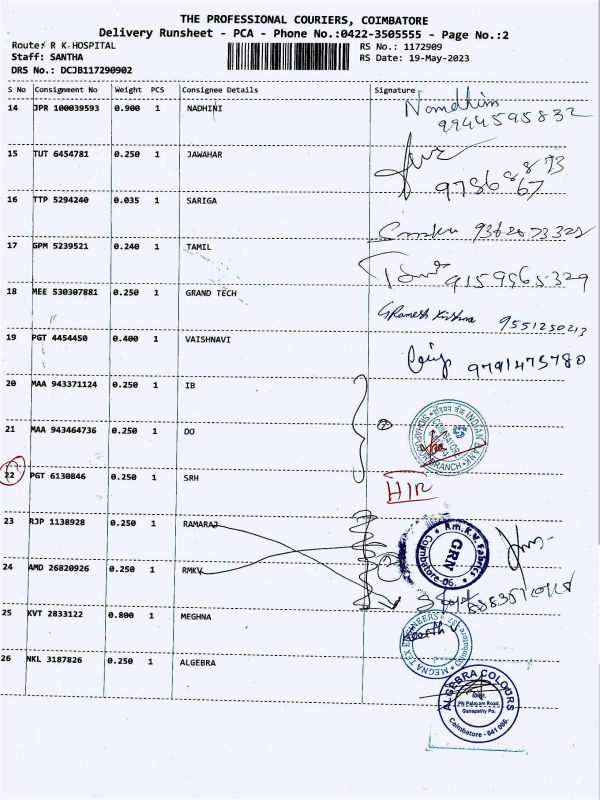 THE PROFESSIONAL COURIERS, COIMBATORE
Delivery Runsheet - PCA - Phone No.:0422-3505555 - Page No.:2
Route: R K HOSPITAL
RS No.: 1172909
Staff: SANTHA
RS Date: 19-May-2023
DRS No.: DCJB117290902
S No Consignment No Weight PCS Consignee Details Signature
14 JPR 100039593 0.900 1 NADHINI Nandhini
9944595832
15 TUT 6454781 0.250 1 JAWAHAR
16 TTP 5294240 0.035 1 SARIGA
17 GPM 5239521 0.240 1 TAMIL 9159565329
18 MEE 530307881 0.250 1 GRAND TECH GRamesh Krishna 9551250213
19 PGT 4454450 0.400 1 VAISHNAVI 9791475780
20 MAA 943371124 0.250 1 IB
21 MAA 943464736 0.250 1 DO INDIAN BANK BRANCH
22 PGT 6130846 0.250 1 SRH H/R
23 RJP 1138928 0.250 1 RAMARAJ
24 AMD 26820926 0.250 1 RMKV Rm.K.V. Fabrics GRN Coimbatore-06.
25 KVT 2833122 0.800 1 MEGHNA MEGNA TEX ENGINEERS
26 NKL 3187826 0.250 1 ALGEBRA ALGEBRA COLOURS
PN Palayam Road,
Ganapathy Po.
Coimbatore - 641 006.